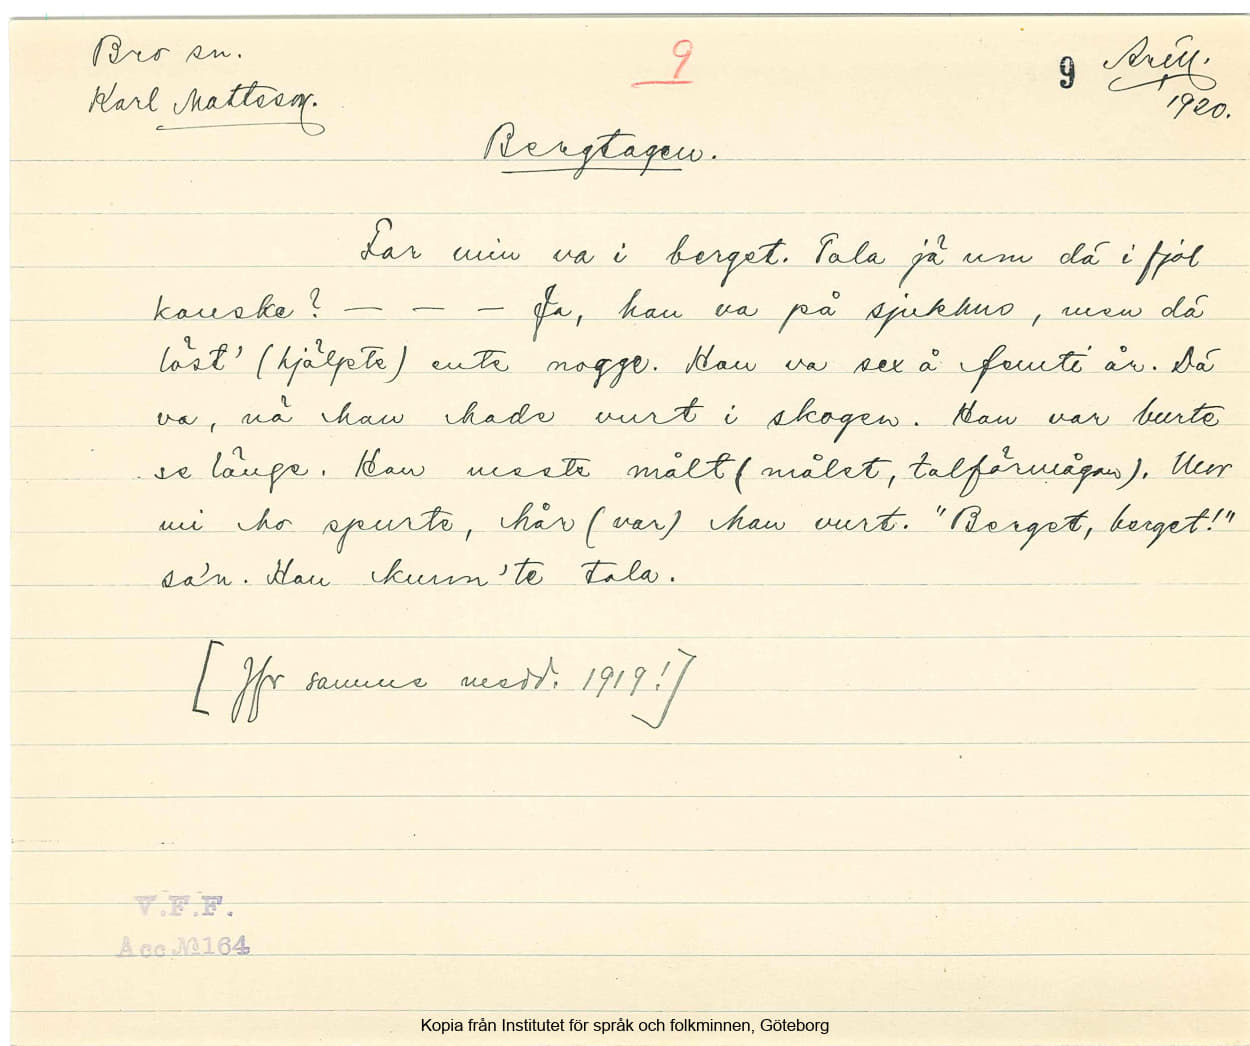 Bro sn.
Karl Mattsson.
9
9
Arill.
1920.
Bergtagen.
Far min va i berget. Tala jå um dá i fjol
kanske? — — — Ja, han va på sjukhus, men dá
låst' (hjälpte) ente nogge. Han va sex å femti år. Dá
va, nå han hade vurt i skogen. Han var burte
se länge. Han meste målt (målet, talförmågan). Mor
mi ho spurte, hår (var) han vurt. "Berget, berget!"
sa'n. Han kunn'te tala.
[Jfr samme medd. 1919!]
V.F.F.
Acc № 164
Kopia från Institutet för språk och folkminnen, Göteborg